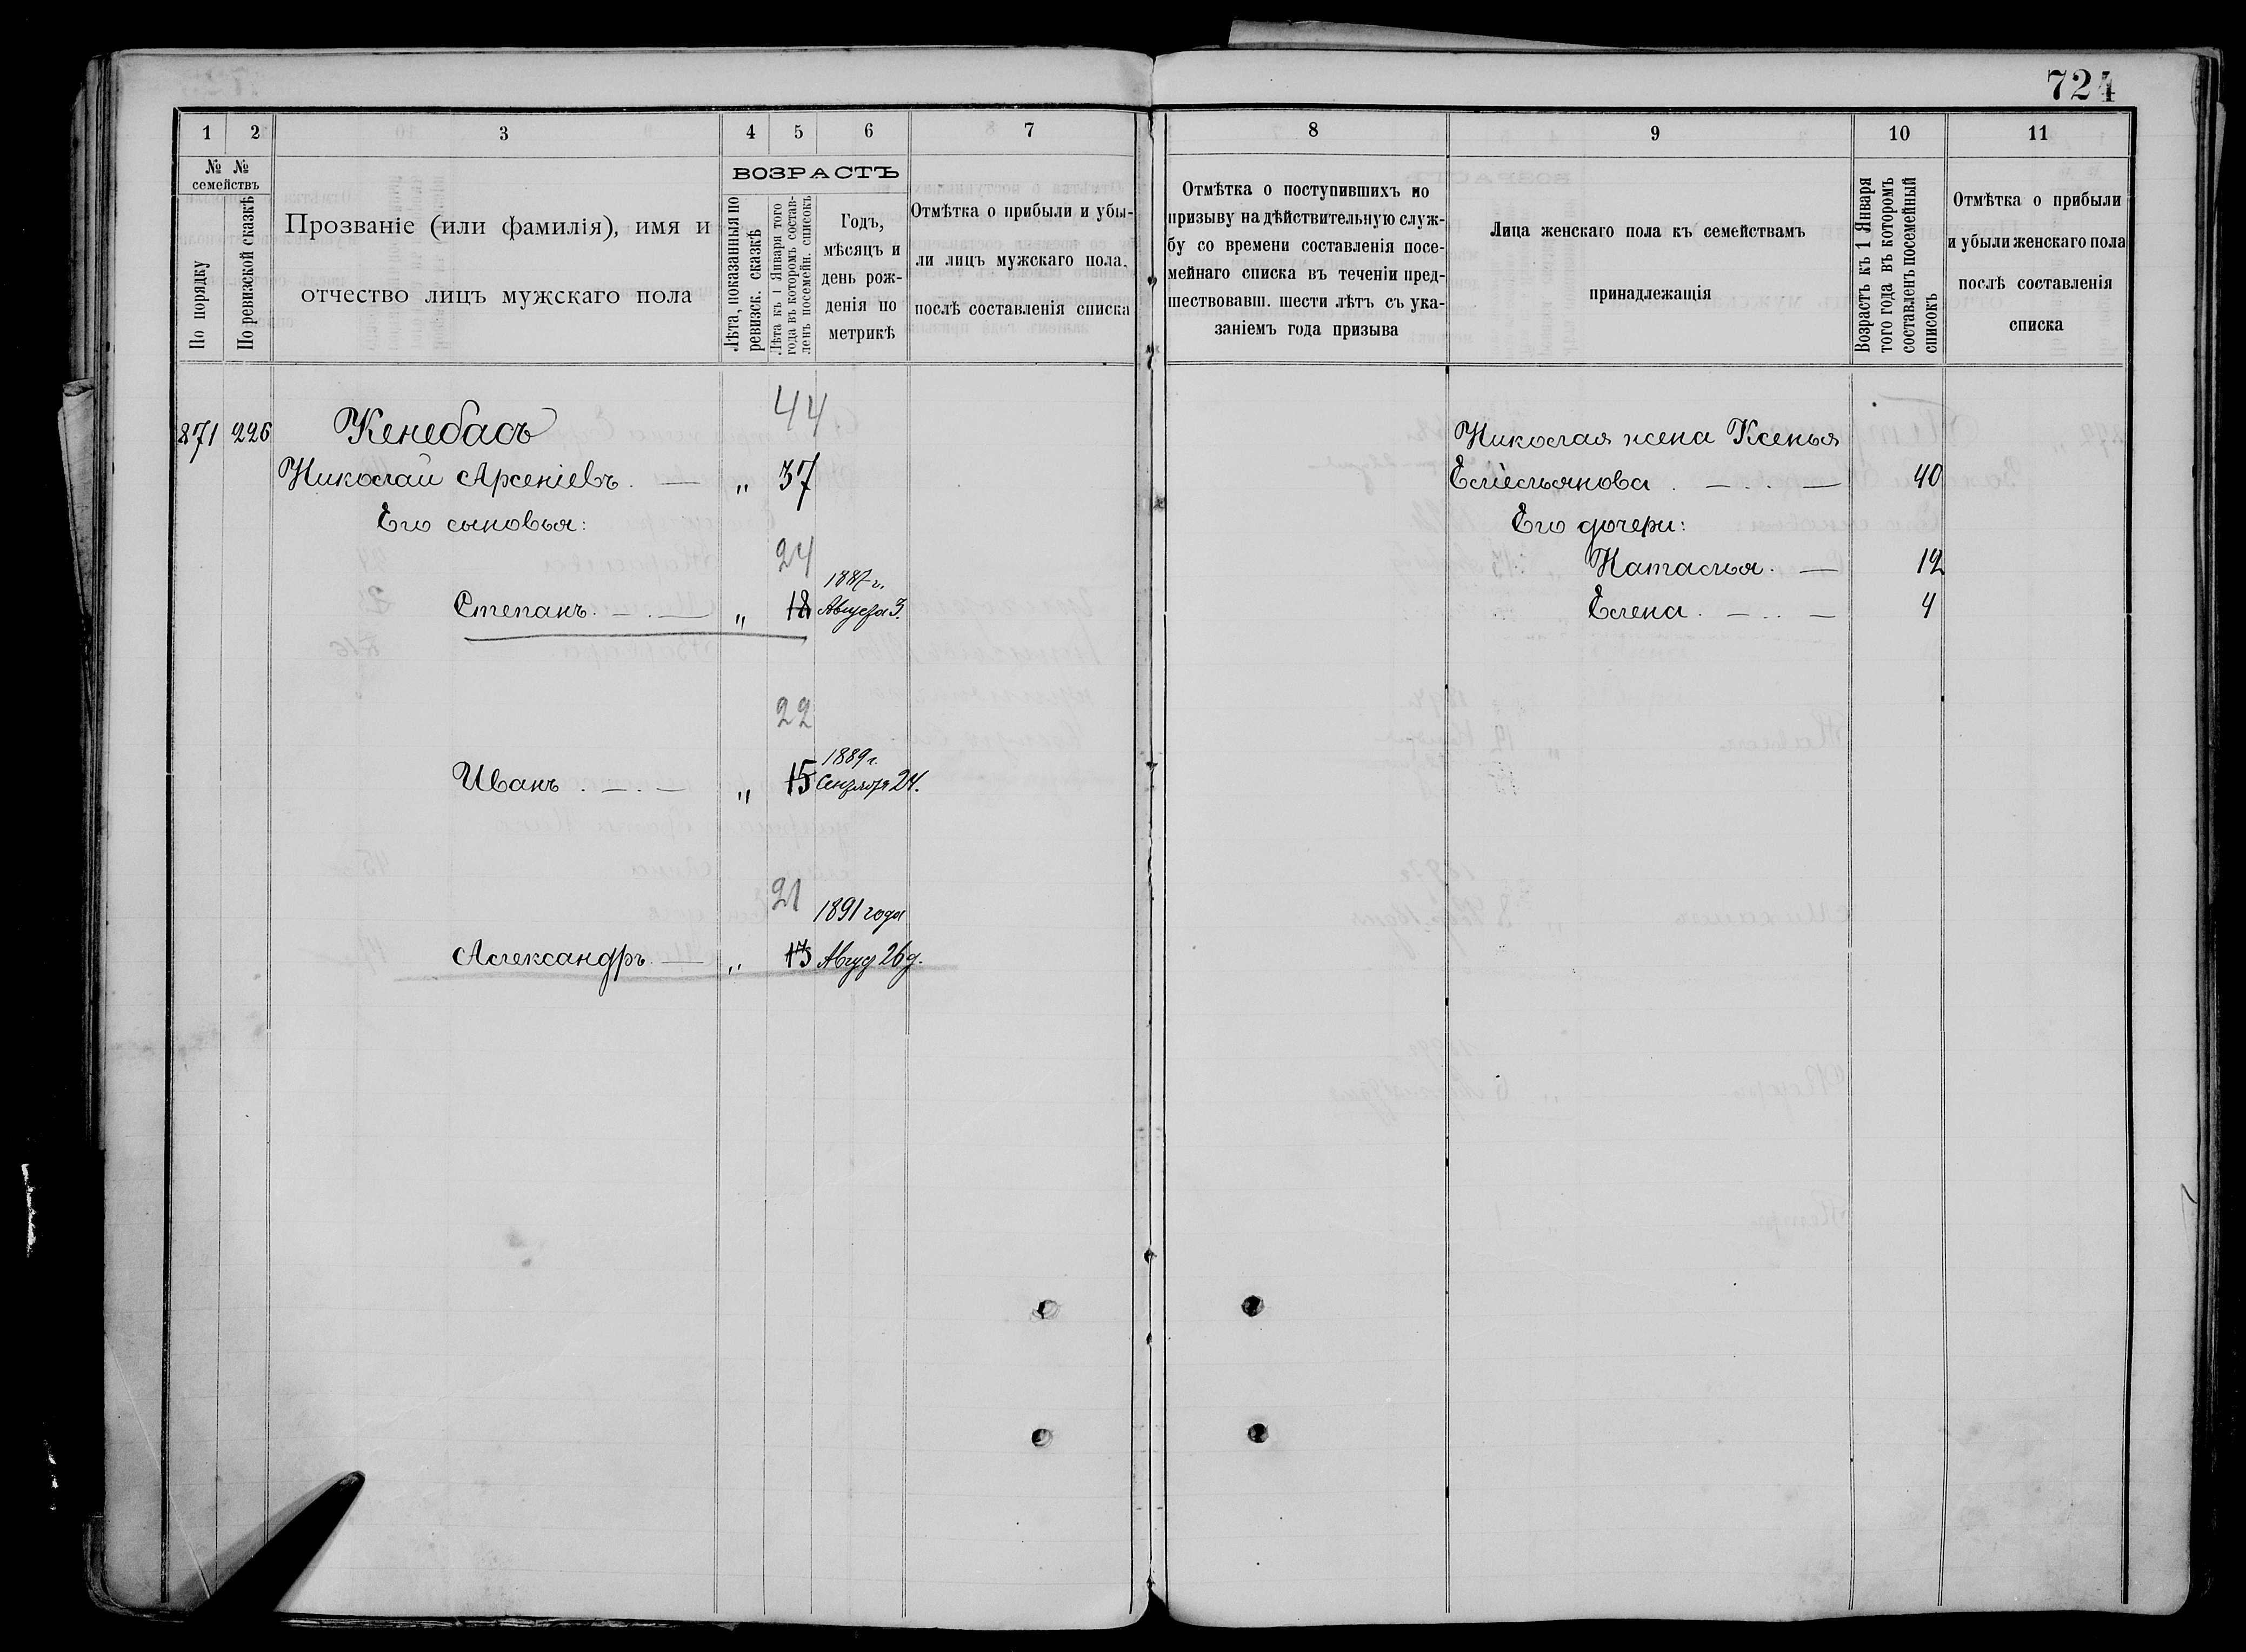 724
1
2
3
4
5
6
7
8
9
10
11
№ №
семействъ
По порядку
По ревизской сказкѣ
Прозваніе (или фамилія), имя и
отчество лицъ мужскаго пола
ВОЗРАСТЪ
Лѣта, показанныя по
ревизск. сказкѣ
Лѣта къ 1 Января того
года въ которомъ состав-
ленъ посемейн. списокъ
Годъ,
мѣсяцъ и
день рож-
денія по
метрикѣ
Отмѣтка о прибыли и убы-
ли лицъ мужскаго пола,
послѣ составленія списка
Отмѣтка о поступившихъ по
призыву на дѣйствительную служ-
бу со времени составленія посе-
мейнаго списка въ теченіи пред-
шествовавш. шести лѣтъ съ ука-
заніемъ года призыва
Лица женскаго пола къ семействамъ
принадлежащія
Возрастъ къ 1 Января
того года въ которомъ
составленъ посемейный
списокъ
Отмѣтка о прибыли
и убыли женскаго пола
послѣ составленія
списка
44
871 226 Кенебасъ
Николай Арсеніевъ. — „ 37
Его сыновья:
24
1887 г.
Степанъ. — . — „ 18 Августа 3.
22
1889 г.
Иванъ . — . — „ 15 Сентября 24.
21
1891 года
Александръ. — „ 13 Авгус 26 д.
Николая жена Ксенья
Емельянова . — . . — 40
Его дочери:
Наталья. — 12
Елена. — . . — 4